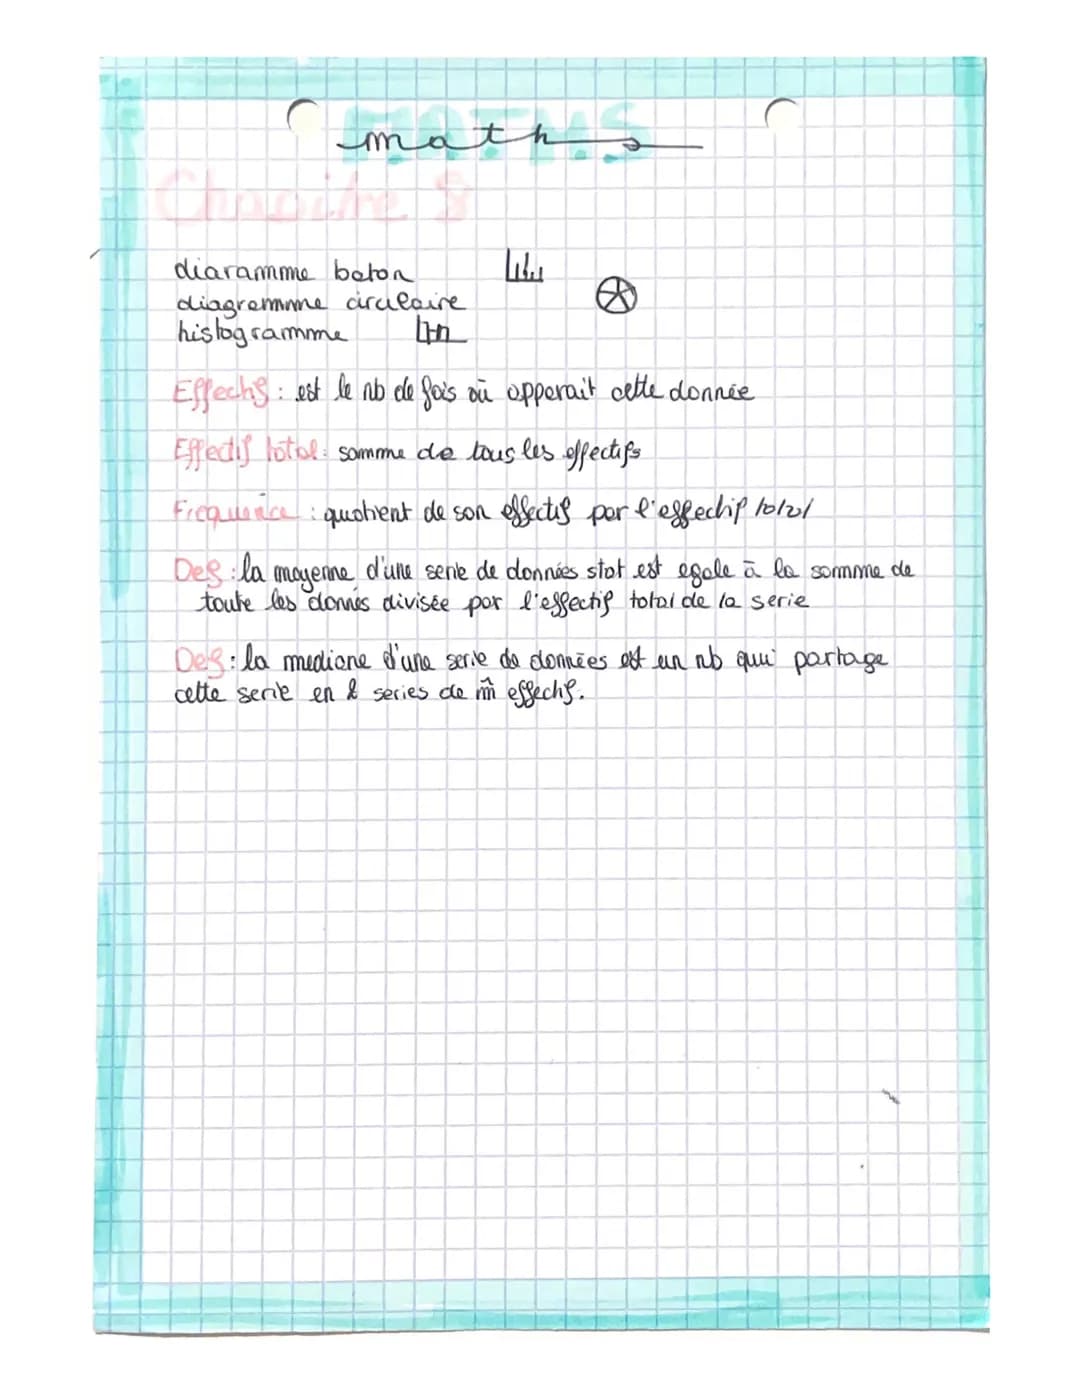 MATHS
maths
Chapitre 8
diaramme baton
diagramme circulaire
histogramme
Effectif : est le nb de fois où apparait cette donnée
Effectif total : somme de tous les effectifs
Frequence : quotient de son effectif par l'effectif total
Def : la moyenne d'une serie de données stat est egale à la somme de
toute les donnés divisée par l'effectif total de la serie
Def : la mediane d'une serie de données est un nb qui partage
cette serie en 2 series de m̂ effectif.